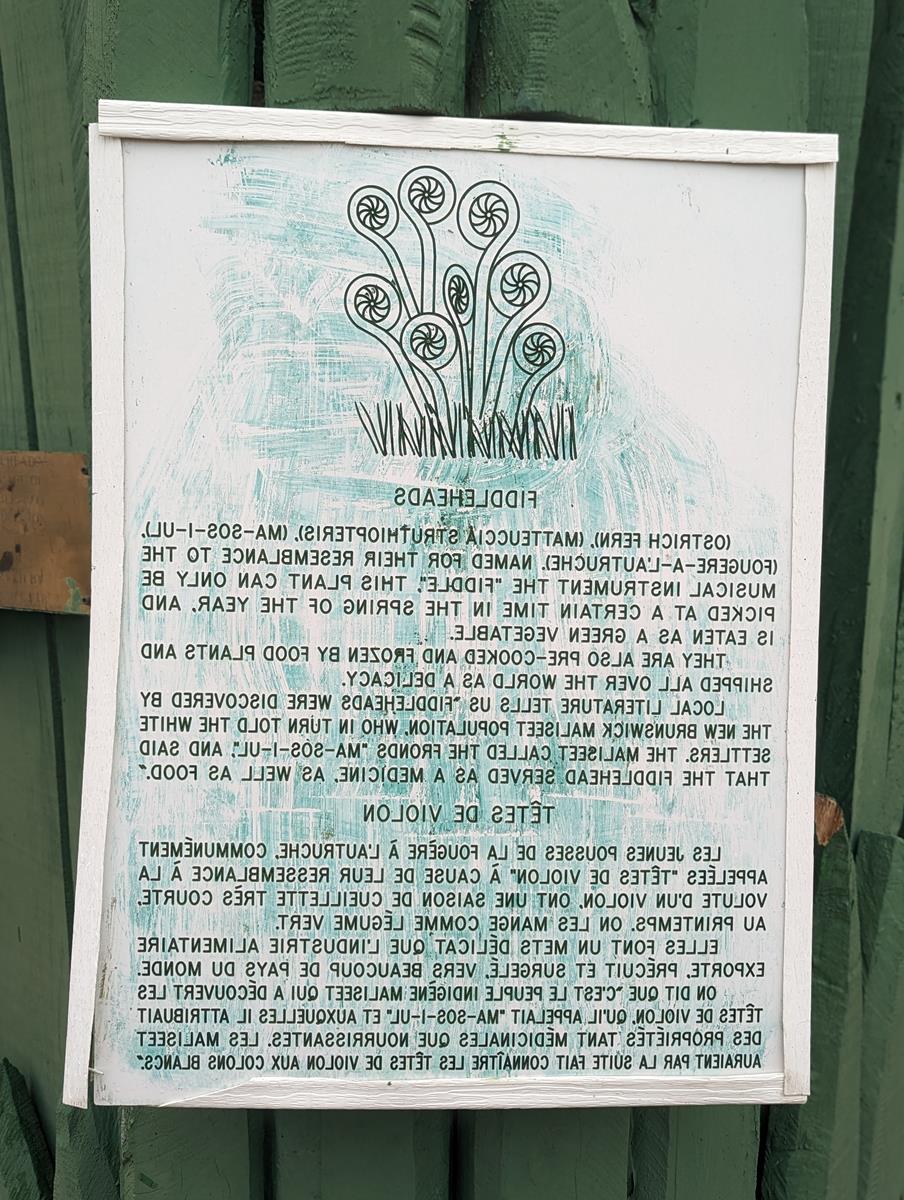 FIDDLEHEADS
(OSTRICH FERN), (MATTEUCCIA STRUTHIOPTERIS), (MA-SOS-I-UL),
(FOUGÈRE-A-L'AUTRUCHE). NAMED FOR THEIR RESEMBLANCE TO THE
MUSICAL INSTRUMENT THE "FIDDLE", THIS PLANT CAN ONLY BE
PICKED AT A CERTAIN TIME IN THE SPRING OF THE YEAR, AND
IS EATEN AS A GREEN VEGETABLE.
THEY ARE ALSO PRE-COOKED AND FROZEN BY FOOD PLANTS AND
SHIPPED ALL OVER THE WORLD AS A DELICACY.
LOCAL LITERATURE TELLS US "FIDDLEHEADS WERE DISCOVERED BY
THE NEW BRUNSWICK MALISEET POPULATION, WHO IN TURN TOLD THE WHITE
SETTLERS. THE MALISEET CALLED THE FRONDS "MA-SOS-I-UL", AND SAID
THAT THE FIDDLEHEAD SERVED AS A MEDICINE, AS WELL AS FOOD."
TÊTES DE VIOLON
LES JEUNES POUSSES DE LA FOUGÈRE À L'AUTRUCHE, COMMUNÉMENT
APPELÉES "TÊTES DE VIOLON" À CAUSE DE LEUR RESSEMBLANCE À LA
VOLUTE D'UN VIOLON, ONT UNE SAISON DE CUEILLETTE TRÈS COURTE,
AU PRINTEMPS. ON LES MANGE COMME LÉGUME VERT.
ELLES FONT UN METS DÉLICAT QUE L'INDUSTRIE ALIMENTAIRE
EXPORTE, PRÉCUIT ET SURGELÉ, VERS BEAUCOUP DE PAYS DU MONDE.
ON DIT QUE "C'EST LE PEUPLE INDIGÈNE MALISEET QUI A DÉCOUVERT LES
TÊTES DE VIOLON, QU'IL APPELAIT "MA-SOS-I-UL" ET AUXQUELLES IL ATTRIBUAIT
DES PROPRIÉTÉS TANT MÉDICINALES QUE NOURRISSANTES. LES MALISEET
AURAIENT PAR LA SUITE FAIT CONNAÎTRE LES TÊTES DE VIOLON AUX COLONS BLANCS."